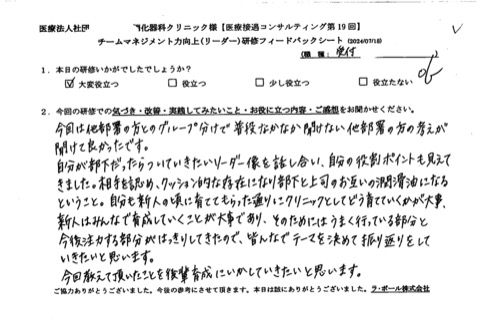 医療法人社団 化器科クリニック様【医療接遇コンサルティング第19回】
チームマネジメント力向上(リーダー)研修フィードバックシート (2024/07/18)
(職 種: 受付 )
1. 本日の研修いかがでしたでしょうか?
☑ 大変役立つ □ 役立つ □ 少し役立つ □ 役立たない
2. 今回の研修での気づき・改善・実践してみたいこと・お役に立つ内容・ご感想をお聞かせください。
今回は他部署の方とのグループ分けで普段なかなか聞けない他部署の方の考えが
聞けて良かったです。
自分が部下だったらついていきたいリーダー像を話し合い、自分の役割ポイントも見えて
きました。相手を認め、クッション的な存在になり部下と上司のお互いの潤滑油になる
ということ。自分も新人の頃に育ててもらった通りにクリニックとしてどう育てていくかが大事、
新人はみんなで育成していくことが大事であり、そのためにはうまく行っている部分と
今後注力する部分がはっきりしてきたので、皆んなでテーマを決めて振り返りをして
いきたいと思います。
今回教えて頂いたことを後輩育成にいかしていきたいと思います。
ご協力ありがとうございました。今後の参考にさせて頂きます。本日は誠にありがとうございました。ラ・ポール株式会社